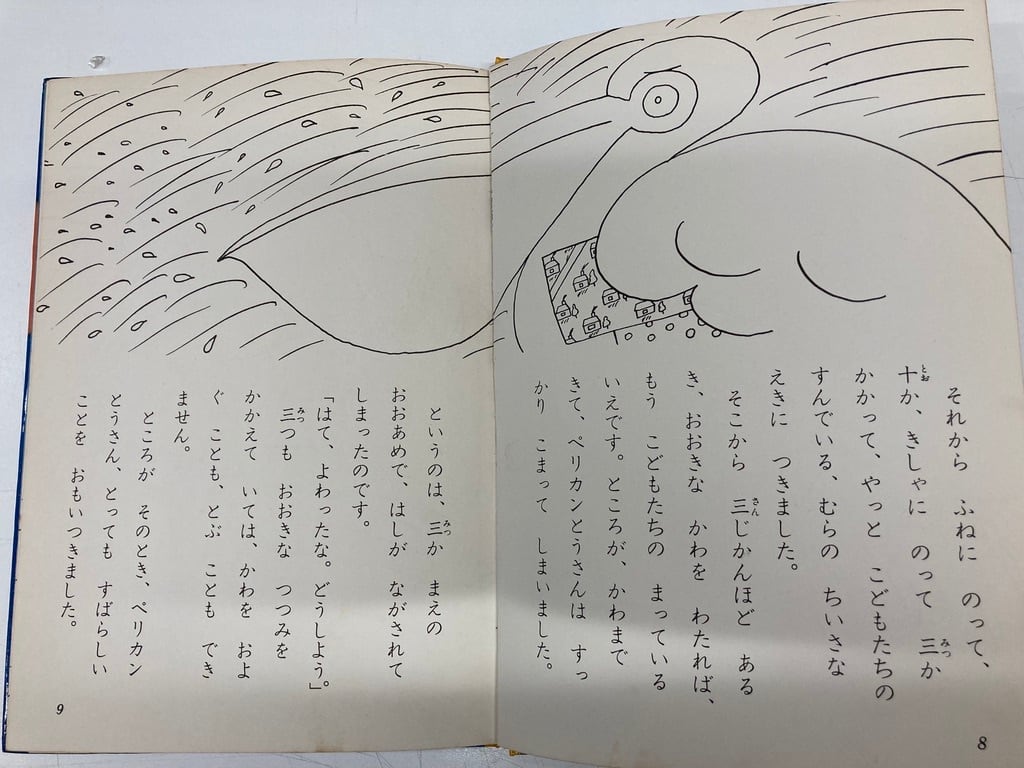 それから　ふねに　のって、
十か、きしゃに　のって　三か
かかって、やっと　こどもたちの
すんでいる、むらの　ちいさな
えきに　つきました。
そこから　三じかんほど　ある
き、おおきな　かわを　わたれば、
もう　こどもたちの　まっている
いえです。ところが、かわまで
きて、ペリカンとうさんは　すっ
かり　こまって　しまいました。
8
というのは、三か　まえの
おおあめで、はしが　ながされて
しまったのです。
「はて、よわったな。どうしよう」。
三つも　おおきな　つつみを
かかえて　いては、かわを　およ
ぐ　ことも、とぶ　ことも　でき
ません。
ところが　そのとき、ペリカン
とうさん、とっても　すばらしい
ことを　おもいつきました。
9